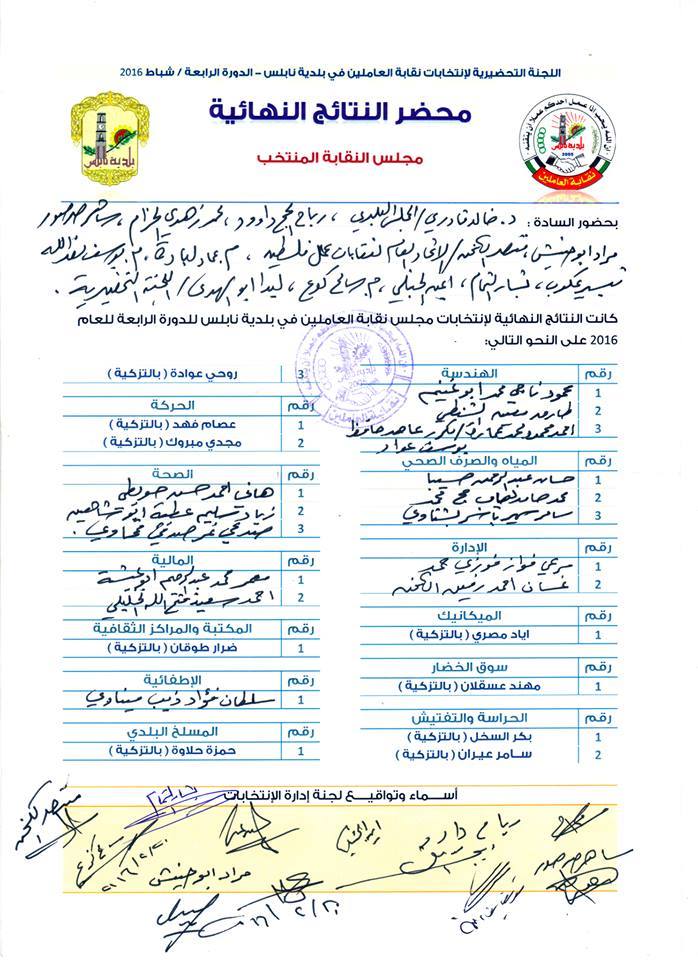 اللجنة التحضيرية لإنتخابات نقابة العاملين في بلدية نابلس – الدورة الرابعة / شباط 2016
محضر النتائج النهائية
مجلس النقابة المنتخب
بلدية نابلس
نقابة العاملين
2005
بحضور السادة : د. خالد قادري / المجلس البلدي ، رباح الحج داوود ، محمد زهدي الحزام ، ساهر صرصور
مراد ابو حنيش ، منتصر الكخن / الاتحاد العام لنقابات عمال فلسطين ، م. عماد لبادة ، م. يوسف نصرالله
تيسير عكوب ، بشار التمام ، ايمن الحنبلي ، م. سامح كوع ، ليدا ابو الهدى / اللجنة التحضيرية .
كانت النتائج النهائية لإنتخابات مجلس نقابة العاملين في بلدية نابلس للدورة الرابعة للعام
2016 على النحو التالي:
رقم الهندسة
1 محمود ناجي محمد ابو غنيم
2 طارق
3 احمد محمود محمد / مكرر عاهد حافظ
يوسف عواد
رقم المياه والصرف الصحي
1 حسان عبد الرحمن
2 محمد
3 سامر سمير
رقم الإدارة
1 مرعي فواز فوزي محمد
2 غسان احمد رزمين الكخن
رقم الميكانيك
1 اياد مصري ( بالتزكية )
رقم سوق الخضار
1 مهند عسقلان ( بالتزكية )
رقم الحراسة والتفتيش
1 بكر السخل ( بالتزكية )
2 سامر عيران ( بالتزكية )
3 روحي عوادة ( بالتزكية )
رقم الحركة
1 عصام فهد ( بالتزكية )
2 مجدي مبروك ( بالتزكية )
رقم الصحة
1 هاني احمد حسن
2 زياد سليم عطية ابو شاهين
3 صدقي نمر صدقي
رقم المالية
1 معمر محمد عبدالرحيم ابو عيشة
2 احمد سعيد فتح الله
رقم المكتبة والمراكز الثقافية
1 ضرار طوقان ( بالتزكية )
رقم الإطفائية
1 سلطان فؤاد ذيب ميناوي
رقم المسلخ البلدي
1 حمزة حلاوة ( بالتزكية )
أسماء وتواقيع لجنة إدارة الإنتخابات
منتصر الكخن
بشار التمام
ايمن الحنبلي
رباح داوود
ساهر صرصور
مراد ابو حنيش